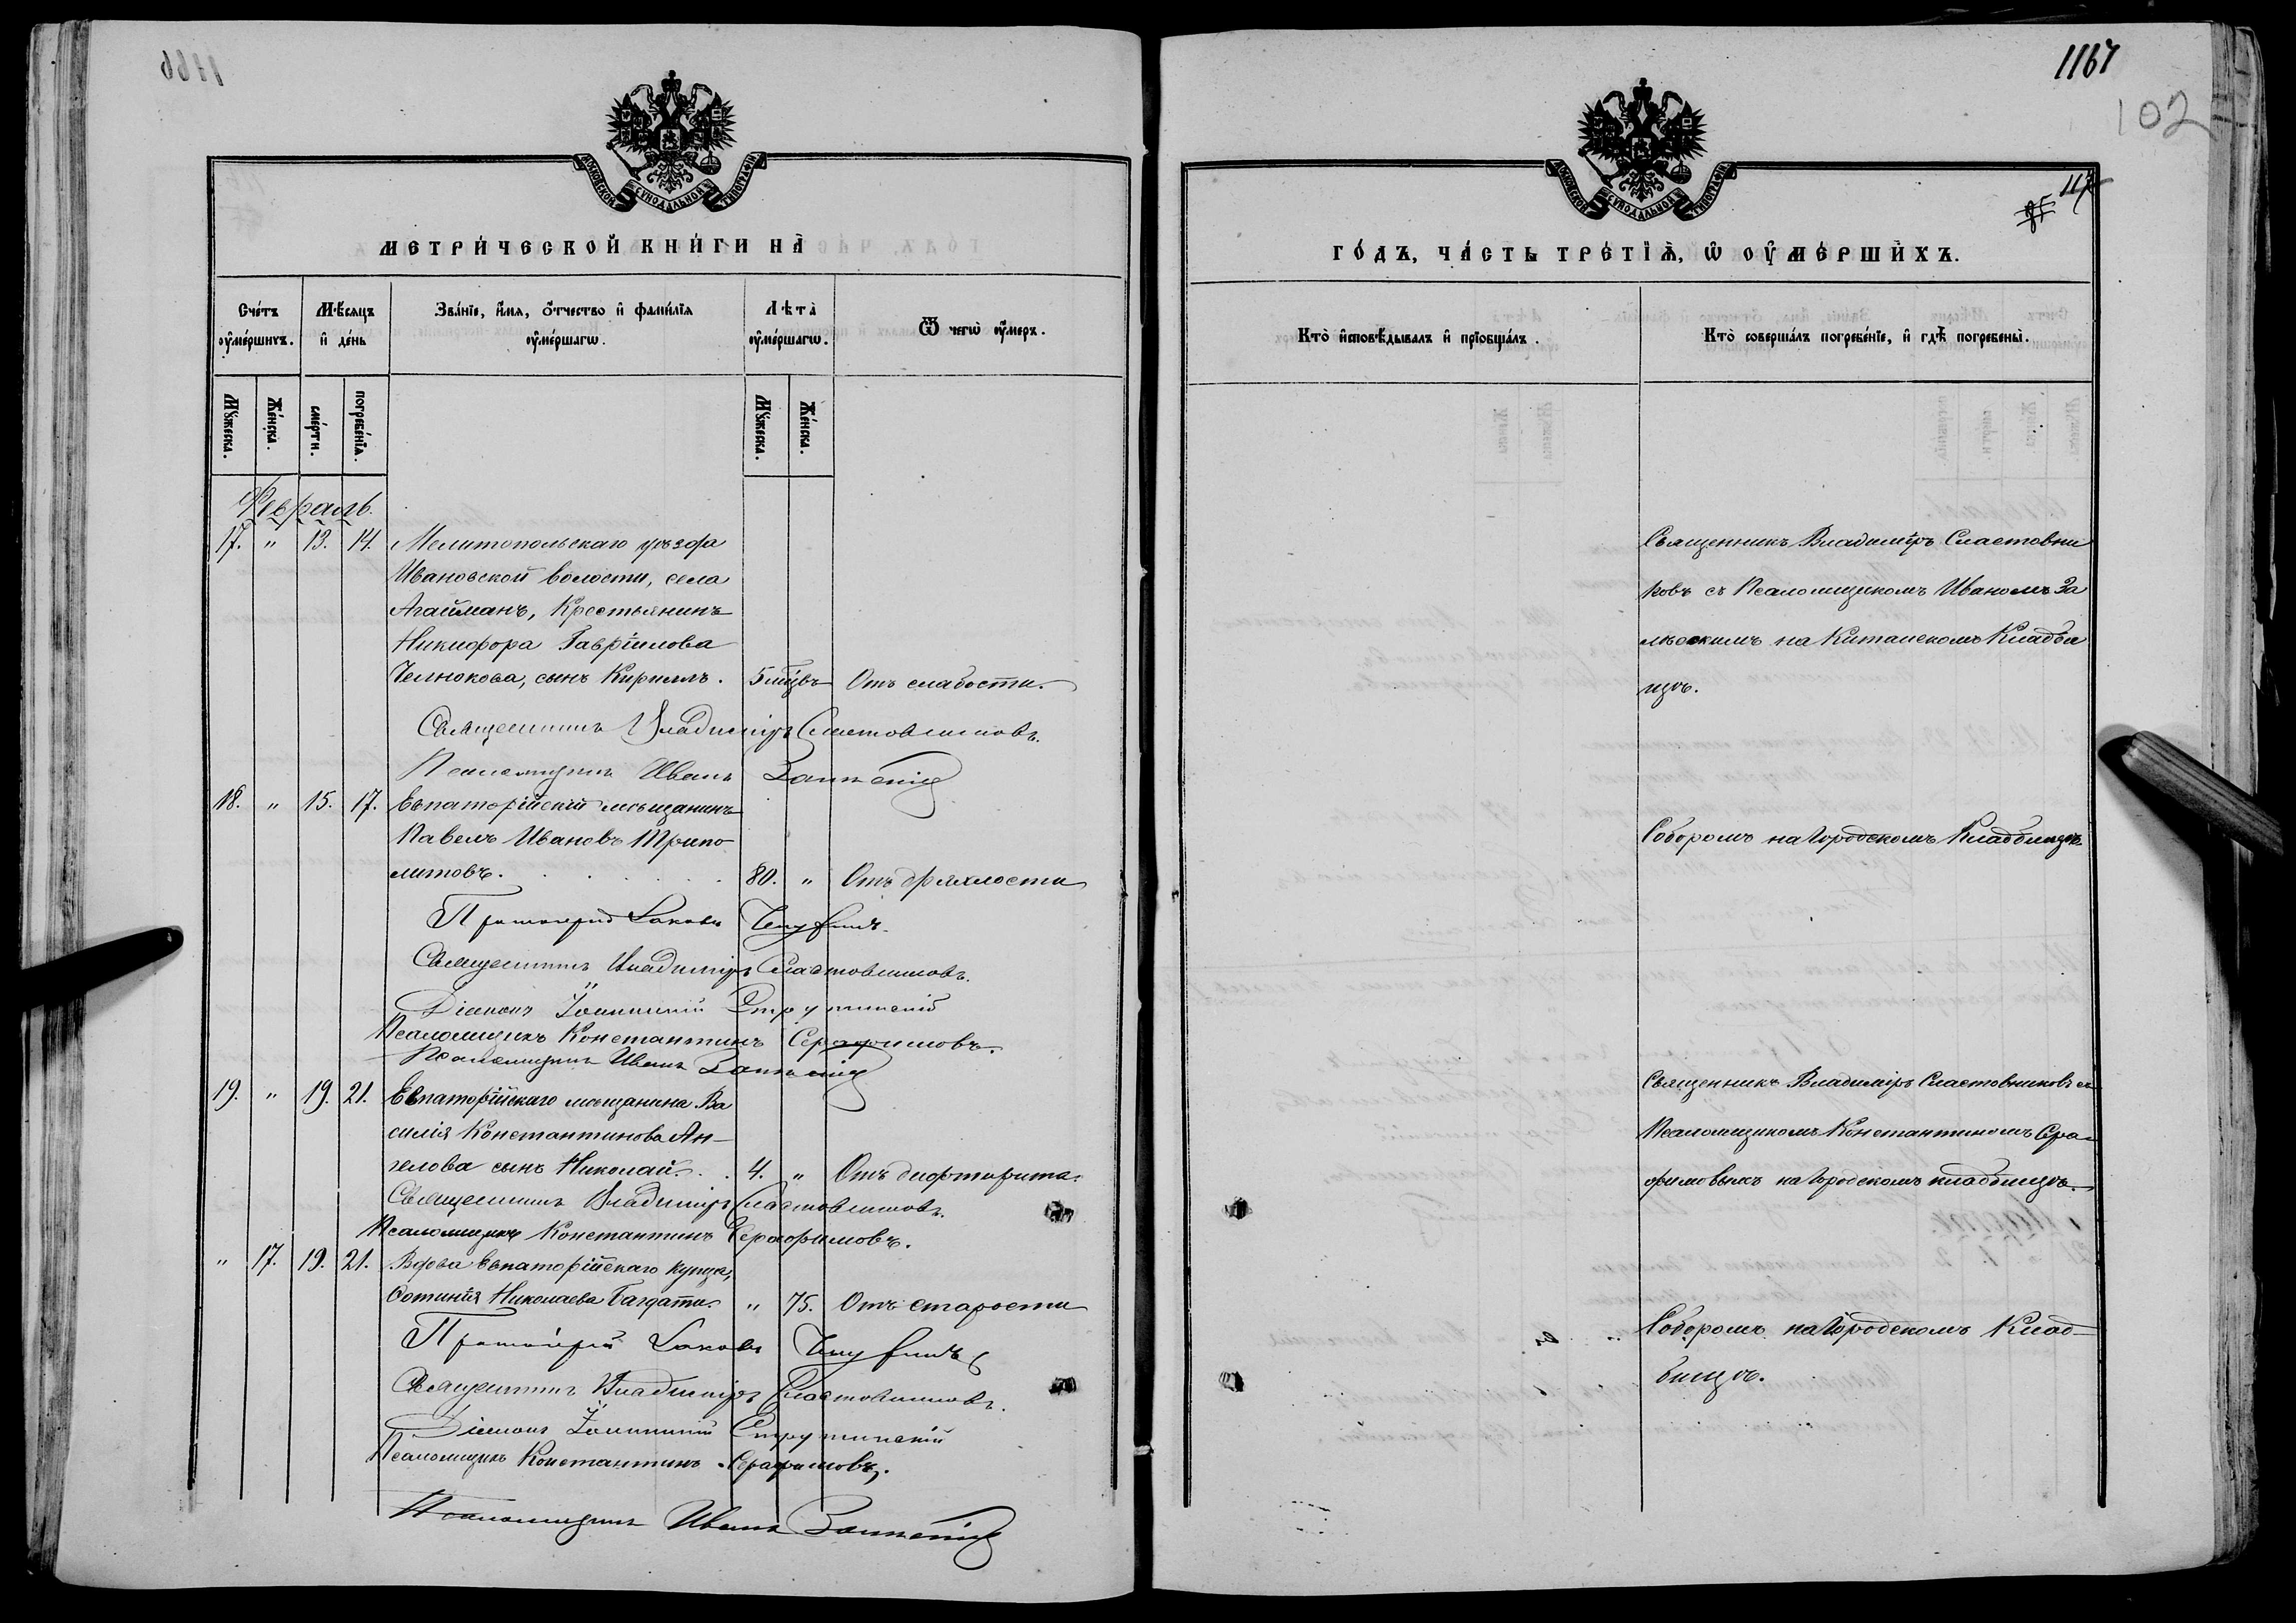 1167
102
117
МОСКОВСКОЙ СѴНОДАЛЬНОЙ ТИПОГРАФІИ
МЕТРИ́ЧЕСКОЙ КНИ́ГИ НА̀
Сче́тъ ᲂу҆ме́ршихъ.
Мѣ́сяцъ и҆ де́нь
Зва́нїе, и҆́мя, ѻ҆́тчество и҆ фами́лїя ᲂу҆ме́ршагѡ.
Лѣта̀ ᲂу҆ме́ршагѡ.
Ѿ чегѡ̀ ᲂу҆́меръ.
Мꙋ́жеска.
Же́нска.
сме́рти.
погребе́нїѧ.
Мꙋ́жеска.
Же́нска.
Февраль.
17. " 13. 14. Мелитопольскаго уѣзда
Ивановской волости, села
Агайманъ, Крестьянинъ
Никифора Гавріилова
Челнокова, сынъ Кириллъ. 5 мцвъ Отъ слабости.
Священникъ Владиміръ Сластовниковъ.
Псаломщикъ Иванъ Залѣскій
18. " 15. 17. Евпаторійскій мѣщанинъ
Павелъ Ивановъ Трипо
литовъ. 80. " Отъ дряхлости
Протоіерей Іаковъ Чепуринъ.
Священникъ Владиміръ Сластовниковъ.
Діаконъ Іоанникій
Псаломщикъ Константинъ Серафимовъ.
Псаломщикъ Иванъ Залѣскій
19. " 19. 21. Евпаторійскаго мѣщанина Ва
силія Константинова Ан-
гелова сынъ Николай. 4. " Отъ дифтерита.
Священникъ Владиміръ Сластовниковъ.
Псаломщикъ Константинъ Серафимовъ.
" 17. 19. 21. Вдова Евпаторійскаго купца,
Фотинія Николаева Багдати. " 75. Отъ старости
Протоіерей Іаковъ Чепуринъ
Священникъ Владиміръ Сластовниковъ.
Діаконъ Іоанникій
Псаломщикъ Константинъ Серафимовъ.
Псаломщикъ Иванъ Залѣскій
МОСКОВСКОЙ СѴНОДАЛЬНОЙ ТИПОГРАФІИ
ГО́ДЪ, ЧА́СТЬ ТРЕ́ТЇѦ, Ѡ҆ ᲂУ҆МЕ́РШИХЪ.
Кто̀ и҆сповѣ́дывалъ и҆ прїобща́лъ.
Кто̀ соверша́лъ погребе́нїе, и҆ гдѣ̀ погребены̀.
Священникъ Владиміръ Сластовни
ковъ съ Псаломщикомъ Иваномъ За
лѣскимъ на Китайскомъ Кладби
щѣ.
Соборомъ на Городскомъ Кладбищѣ.
Священникъ Владиміръ Сластовниковъ съ
Псаломщикомъ Константиномъ Сера-
фимовымъ на Городскомъ кладбищѣ.
Соборомъ на Городскомъ Клад-
бищѣ.